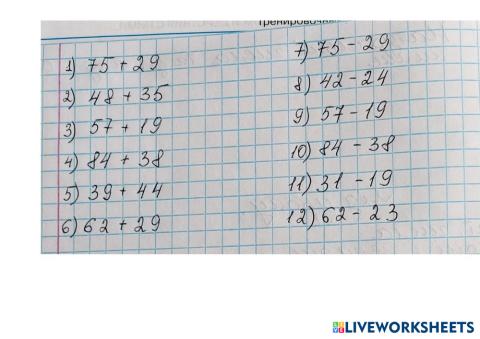 1) 75 + 29
2) 48 + 35
3) 57 + 19
4) 84 + 38
5) 39 + 44
6) 62 + 29
7) 75 - 29
8) 42 - 24
9) 57 - 19
10) 84 - 38
11) 31 - 19
12) 62 - 23
LIVEWORKSHEETS